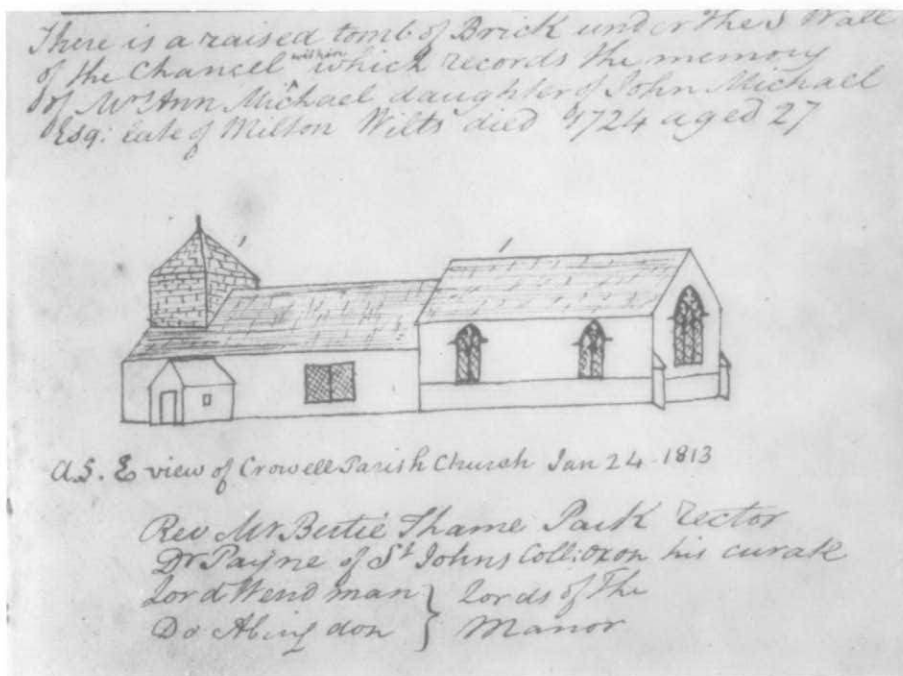 There is a raised tomb of Brick under the S Wall
of the Chancel within which records the memory
of Mrs Ann Michael daughter of John Michael
Esq: late of Milton Wilts died 1724 aged 27
A S. E view of Crowell Parish Church Jan 24 - 1813
Rev Mr Bertie Thame Park rector
Dr Payne of St Johns Coll: Oxon his curate
Lord Wendman } Lords of The
Do Abingdon } Manor